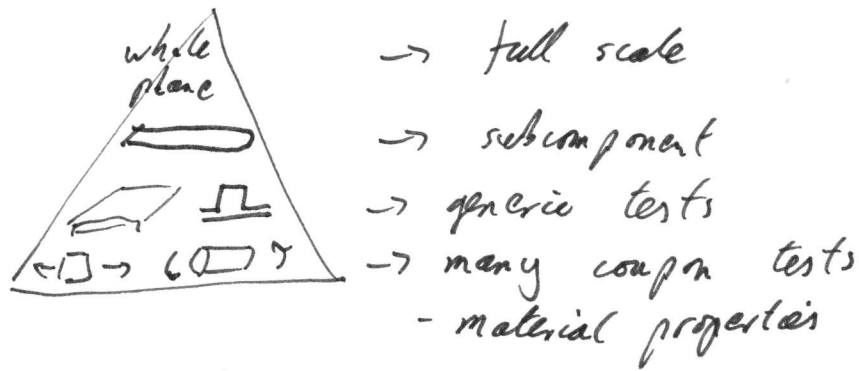 whole
plane
→ full scale
→ subcomponent
→ generic tests
→ many coupon tests
- material properties